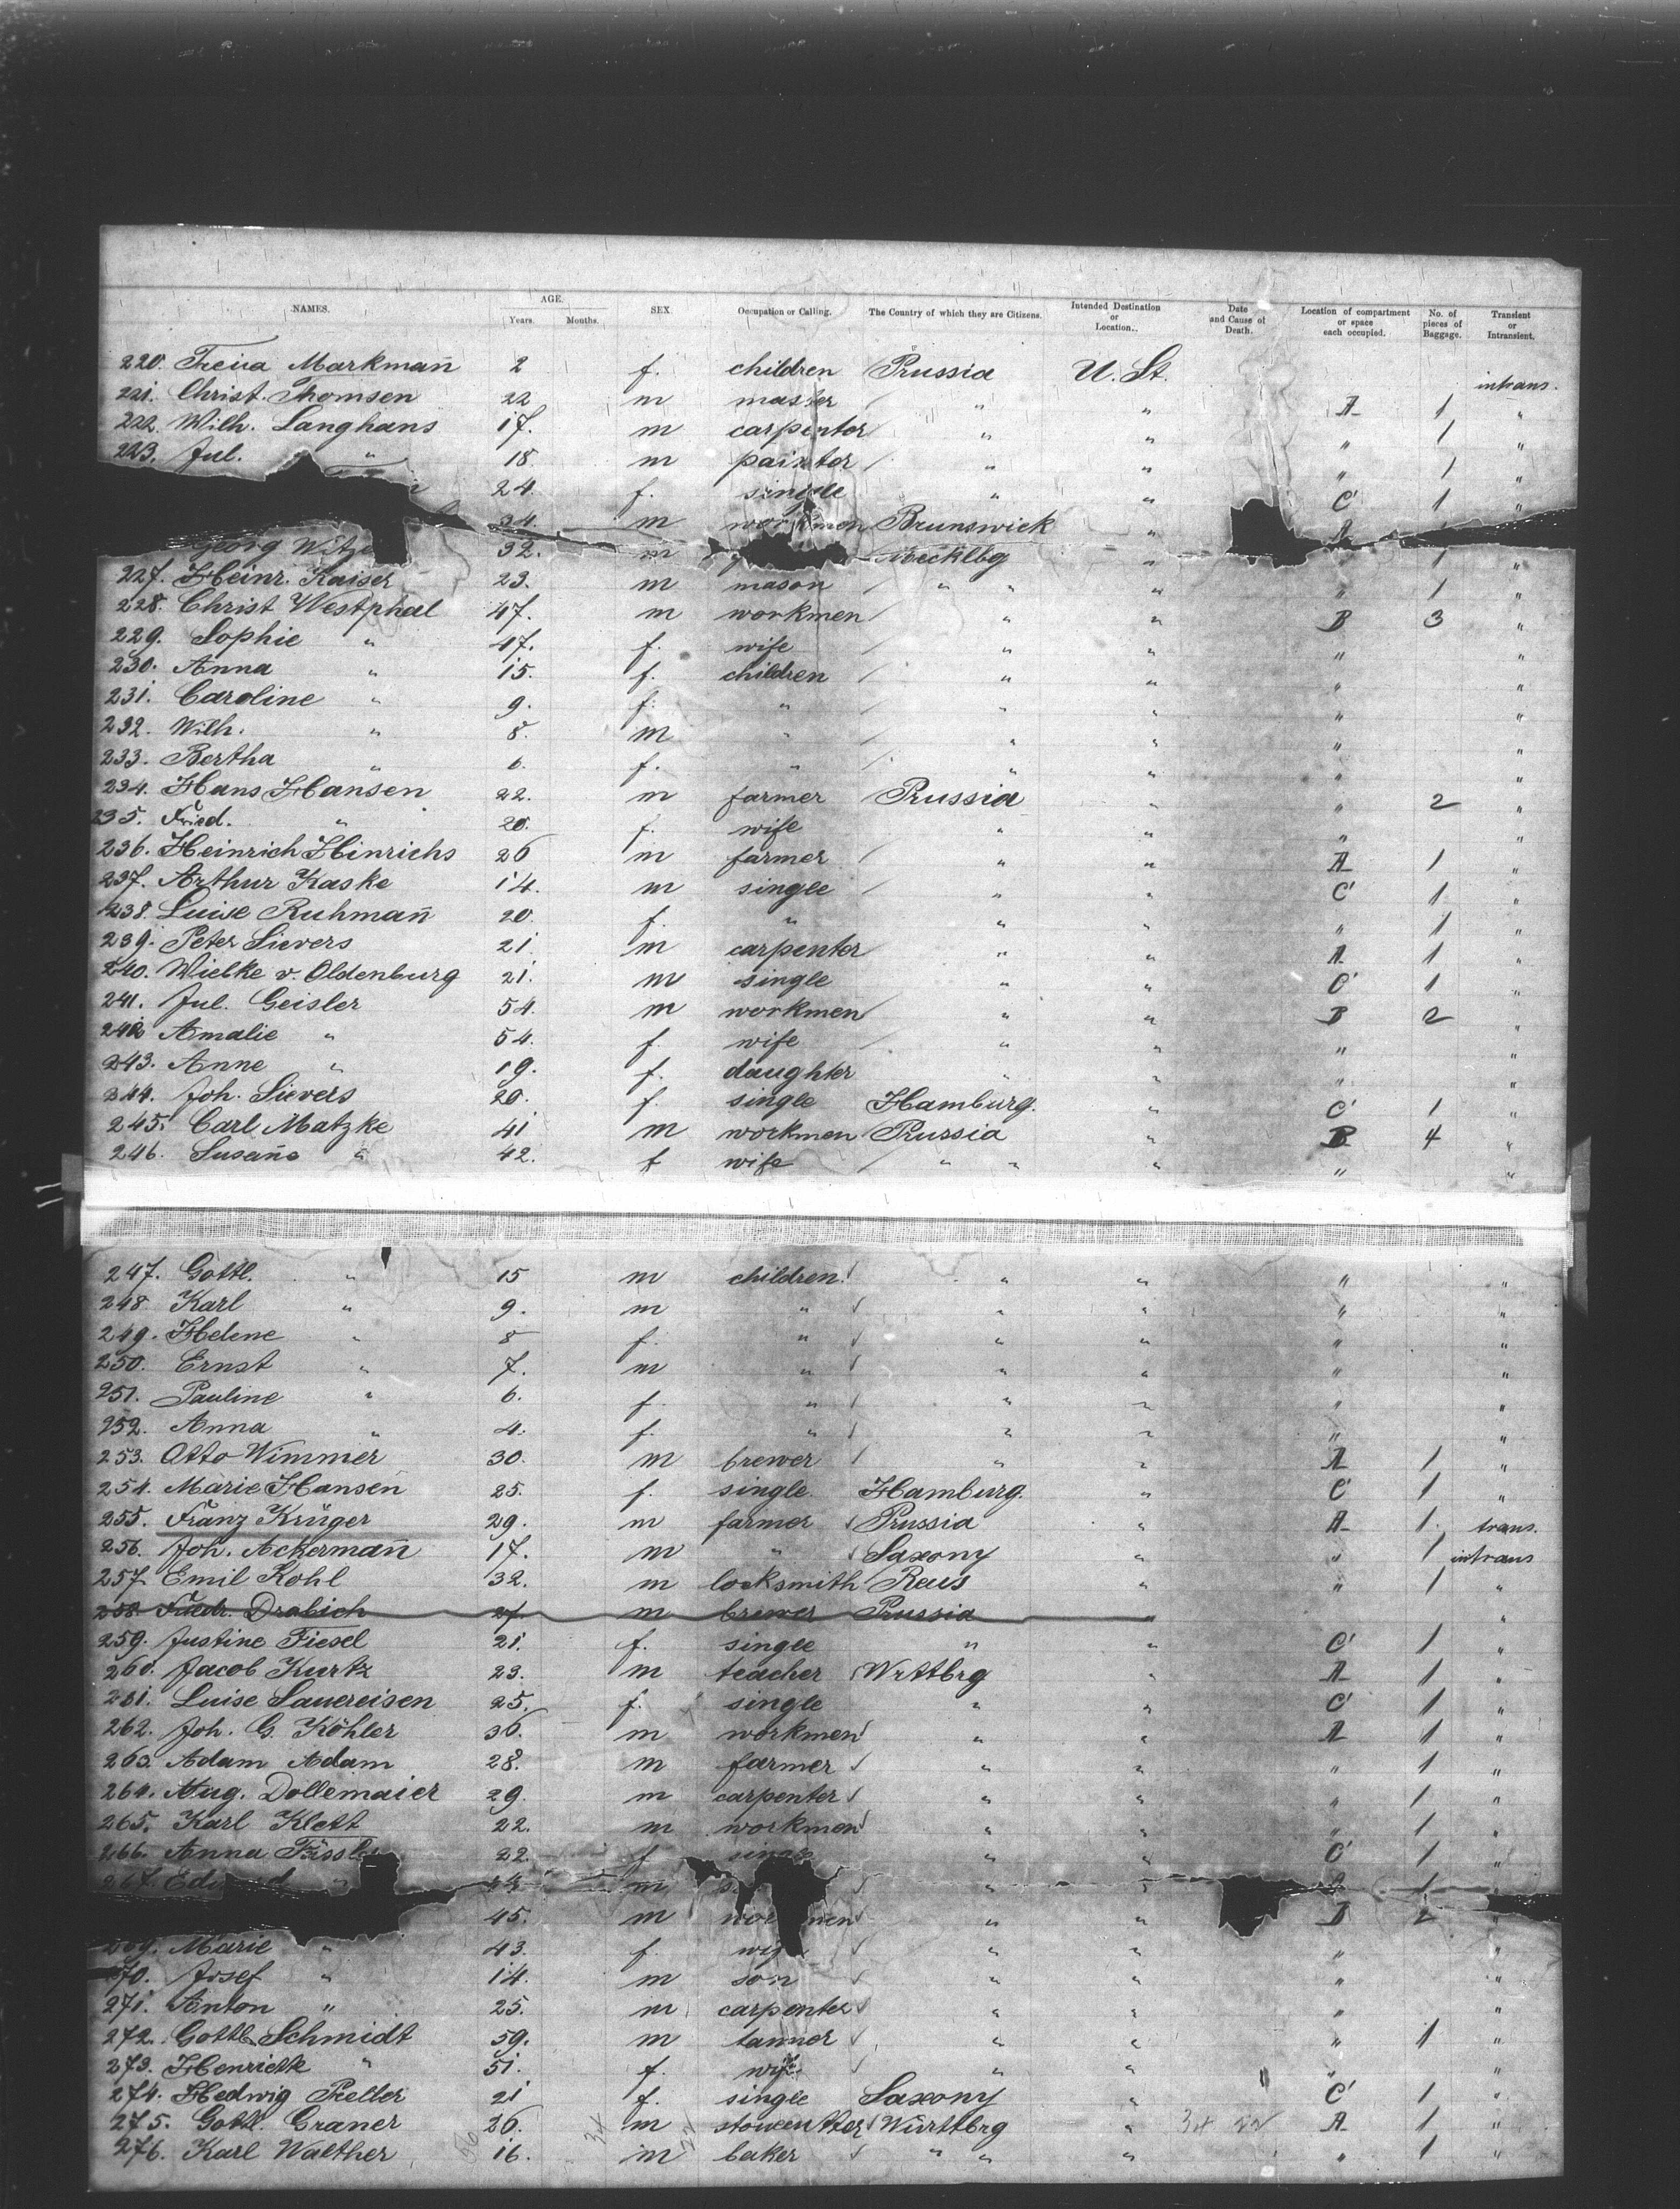 NAMES. AGE. Years. Months. SEX Occupation or Calling. The Country of which they are Citizens. Intended Destination or Location. Date and Cause of Death. Location of compartment or space each occupied. No. of pieces of Baggage. Transient or Intransient.
220. Markmañ 2 f. children Prussia U. St. intrans.
221. Christ. Thomsen 22 m master / " " A 1 "
222. Wilh. Langhans 17. m carpenter / " " " 1 "
223. Jul. " 18. m painter / " " " 1 "
24. f. single " " C 1 "
34. m workmen Brunswick "
Georg 32. m Mecklbg " 1 "
227. Heinr. Kaiser 23. m mason / " " " " 1 "
228. Christ Westphal 47. m workmen / " " B 3 "
229. Sophie " 47. f. wife / " " " "
230. Anna " 15. f. children / " " " "
231. Caroline " 9. f. " / " " " "
232. Wilh. " 8. m " / " " " "
233. Bertha " 6. f. " / " " " "
234. Hans Hansen 22. m farmer / Prussia " " 2 "
235. Fried. " 20. f. wife " " " "
236. Heinrich Hinrichs 26 m farmer / " " A 1 "
237. Arthur Kaske 14. m single / " " C 1 "
238. Luise Ruhmañ 20. f. " " " " 1 "
239. Peter Sievers 21 m carpenter " " A 1 "
240. Wiebke v. Oldenburg 21. m single " " C 1 "
241. Jul. Geisler 54. m workmen / " " B 2 "
242 Amalie " 54. f. wife / " " " "
243. Anne " 19. f. daughter " " " "
244. Joh. Sievers 20. f. single Hamburg. " C 1 "
245. Carl Matzke 41 m workmen Prussia " B 4 "
246. Susañe " 42. f wife / " " " " "
247. Gottl. " 15 m children / " " " "
248. Karl " 9. m " / " " " "
249. Helene " 8 f. " / " " " "
250. Ernst " 7. m " / " " " "
251. Pauline " 6. f. " / " " " "
252. Anna " 4. f. " / " " " "
253. Otto Wimmer 30. m brewer / " " A 1 "
254. Marie Hansen 25. f. single. Hamburg. " C 1 "
255. Franz Krüger 29. m farmer / Prussia " A 1. trans.
256. Joh. Ackermañ 17. m " / Saxony " " 1 intrans
257. Emil Kohl 32. m locksmith Reus " " 1 "
258. Friedr. Drabich 27. m brewer Prussia " "
259. Justine Fiesel 21. f. single " " C 1 "
260. Jacob Kurtz 23. m teacher / Wrttbrg " A 1 "
261. Luise Sauereisen 25. f. single " " C 1 "
262. Joh. G. Köhler 36. m workmen / " " A 1 "
263. Adam Adam 28. m farmer / " " " 1 "
264. Aug. Dollemaier 29. m carpenter / " " " 1 "
265. Karl Klett 22. m workmen / " " " 1 "
266. Anna 22. f " " C 1 "
267. m / " " 1 "
45. m workmen / " " B 2 "
269. Marie " 43. f. / " " " "
270. Josef " 14. m son / " " " "
271. Anton " 25. m carpenter / " " " "
272. Gottl. Schmidt 59. m tanner / " " " 1 "
273. Henriette " 51. f. wife / " " " "
274. Hedwig Peller 21 f. single Saxony " C 1 "
275. Gottl. Graner 26. m / Württbrg " A 1 "
276. Karl Walther 16. m baker " " " " 1 "